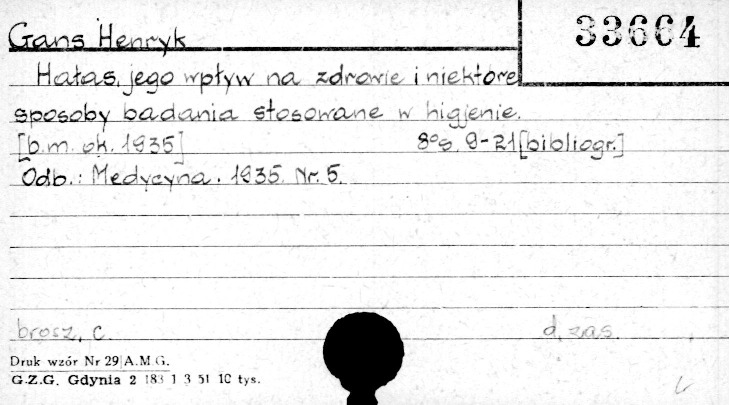 33664
Gans Henryk
Hałas, jego wpływ na zdrowie i niektóre
sposoby badania stosowane w higjenie.
[b.m. ok. 1935] 8° s. 9-21 [bibliogr.]
Odb.: Medycyna. 1935. Nr. 5.
brosz. c. d. zas.
Druk wzór Nr 29 A.M.G.
G.Z.G. Gdynia 2 183 1 3 51 10 tys.